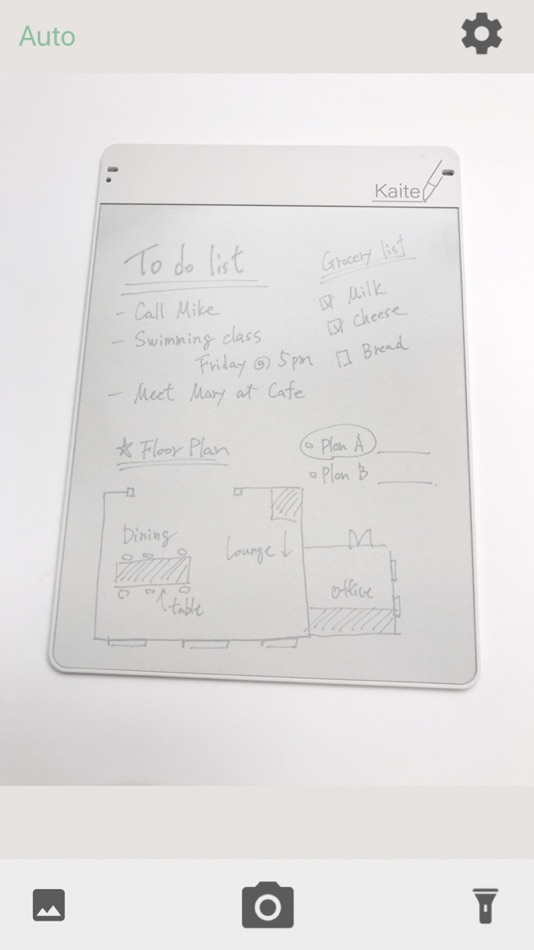 Auto
Kaite
To do list
- Call Mike
- Swimming class
Friday @ 5pm
- Meet Mary at Cafe
Grocery list
☒ Milk
☒ Cheese
☐ Bread
☆ Floor Plan
Plan A
Plan B
Dining
table
Lounge ↓
office